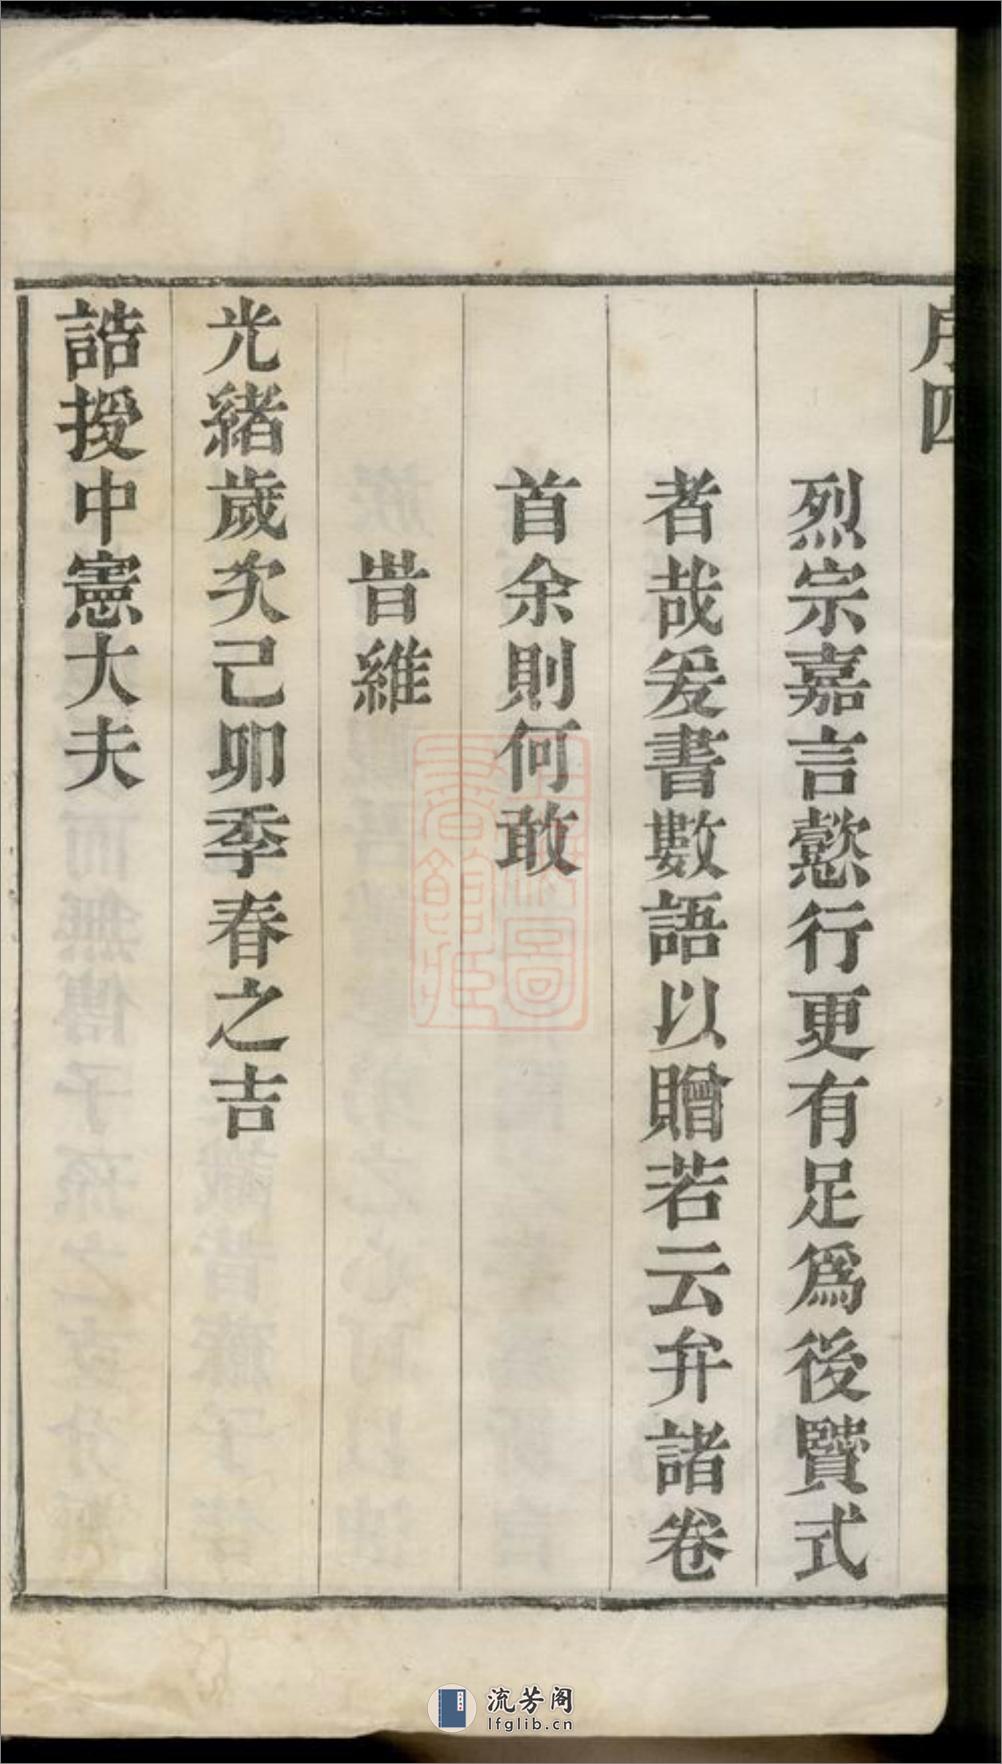 序四
烈宗嘉言懿行更有足爲後賢式
者哉爰書數語以贈若云弁諸卷
首余則何敢
旹維
光緒歲次己卯季春之吉
誥授中憲大夫
流芳阁
lfglib.cn